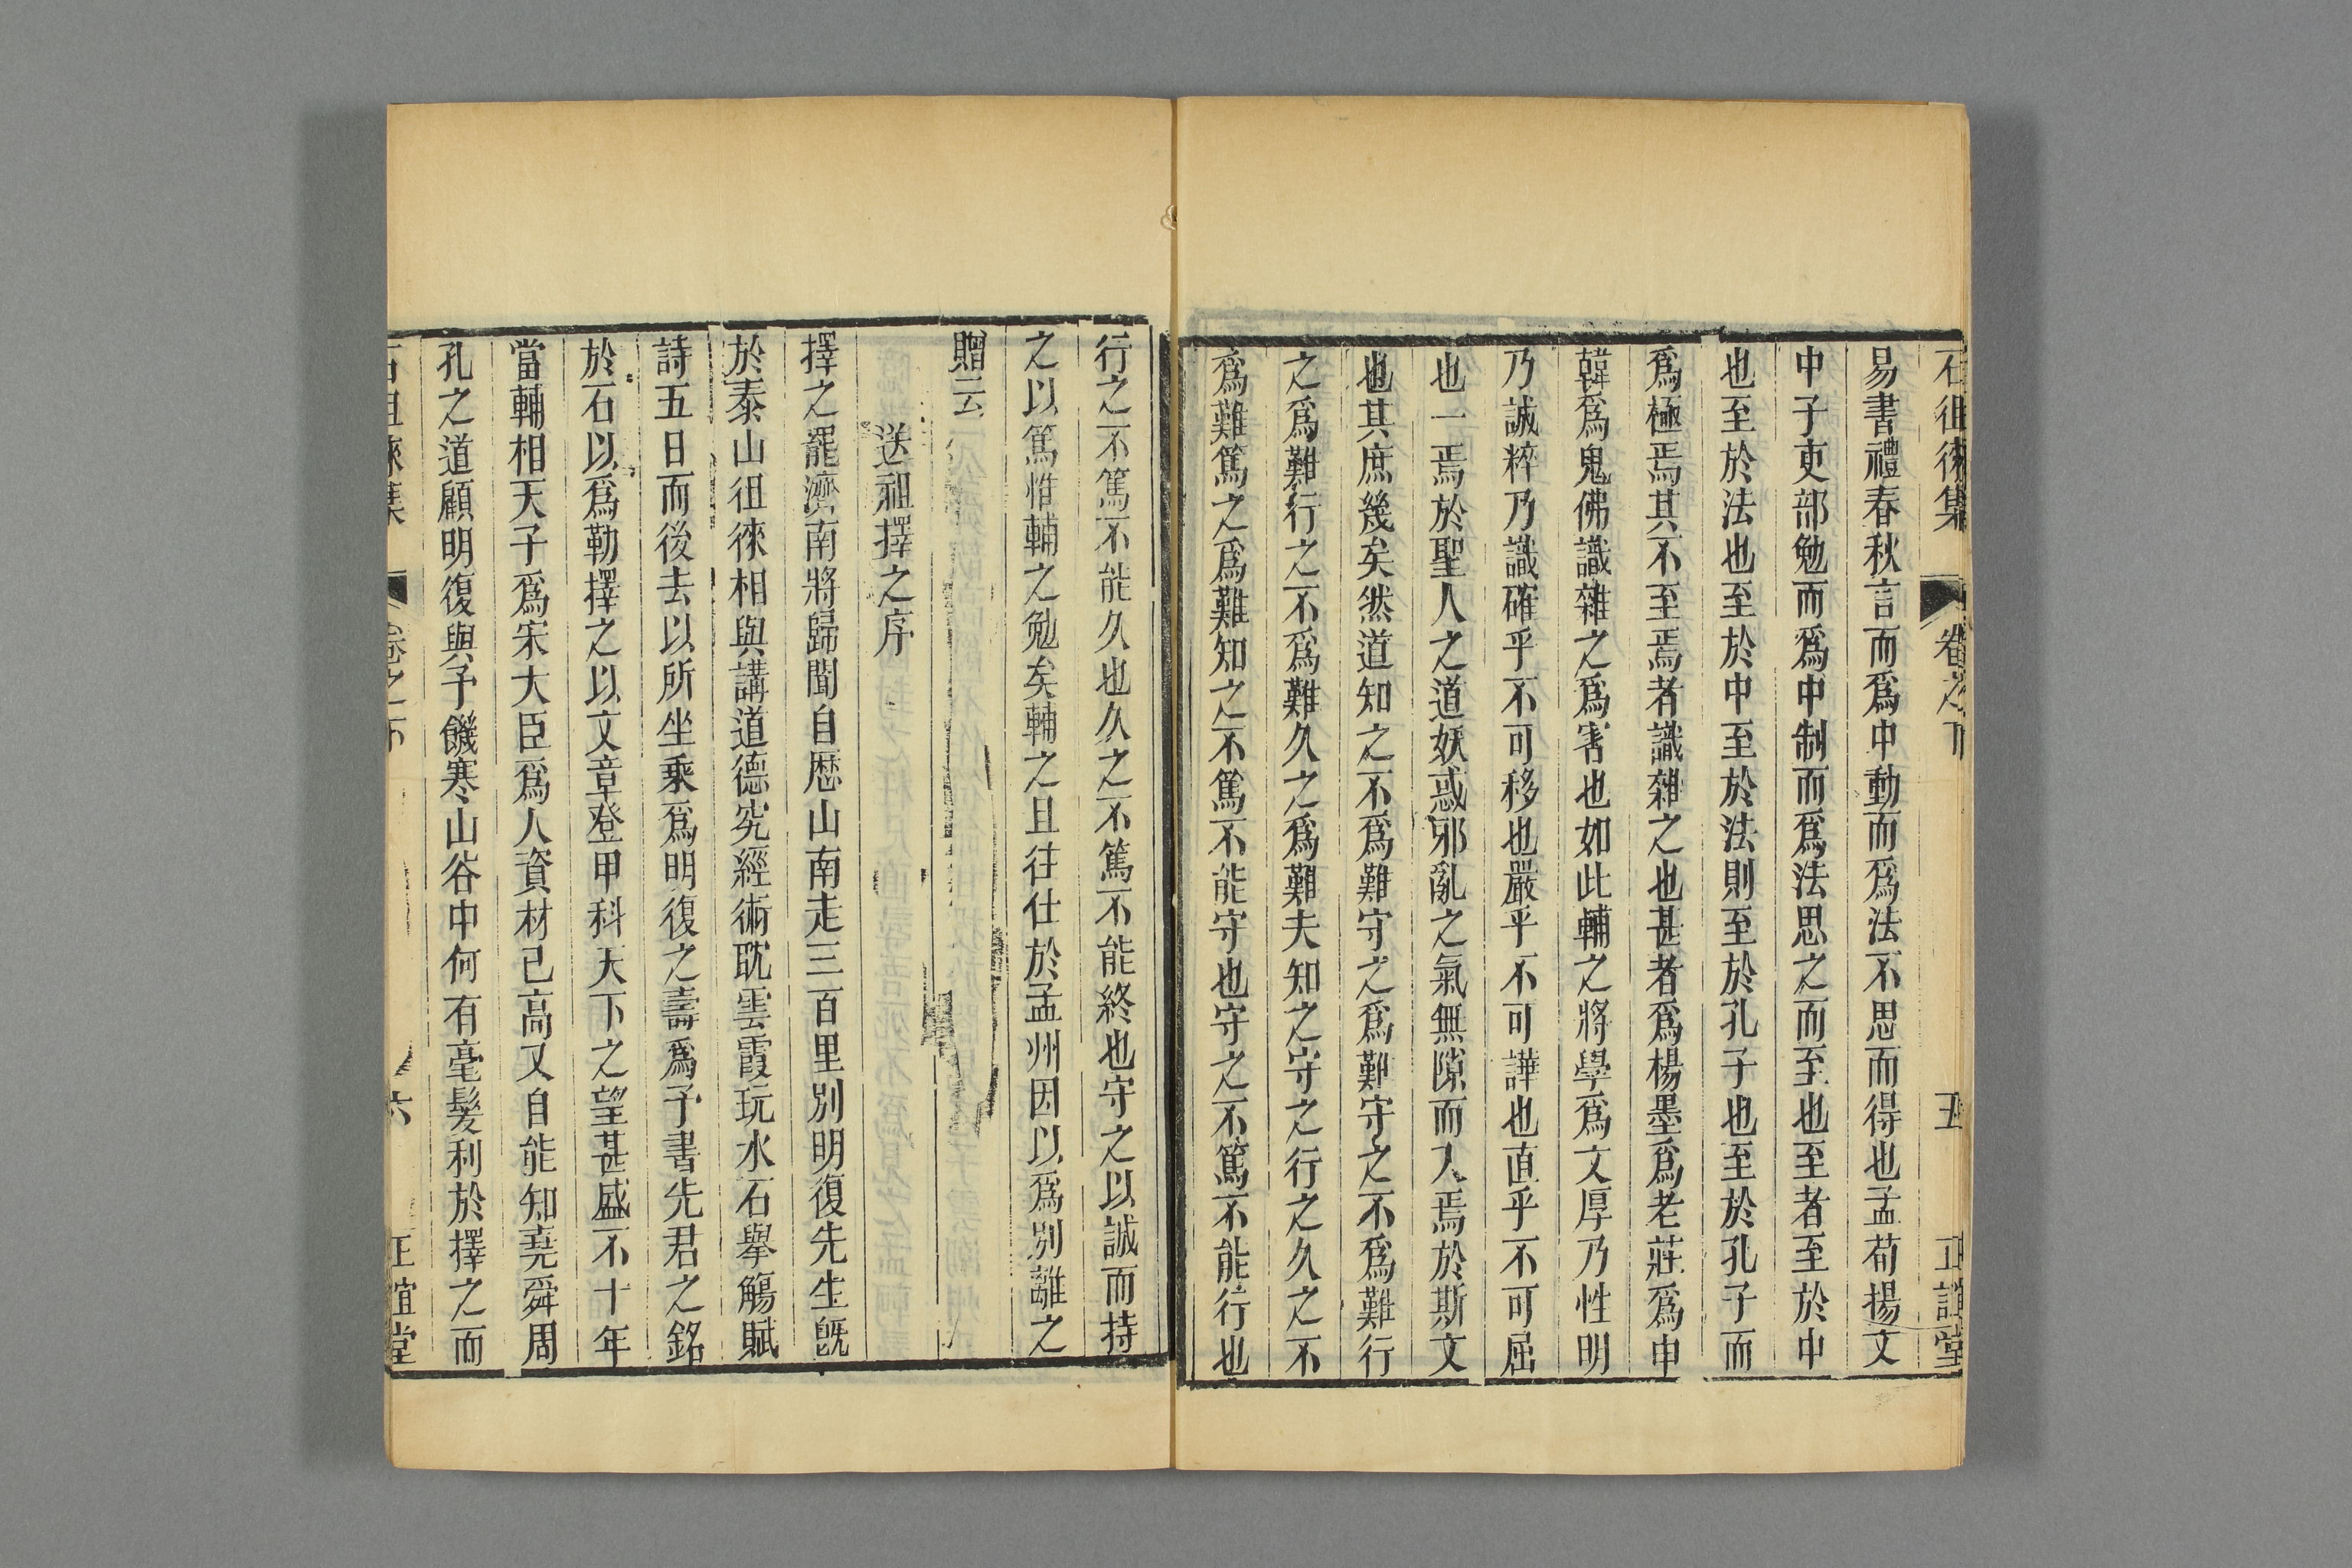 石徂徠集 卷之下 五 正誼堂
易書禮春秋言而爲中動而爲法不思而得也孟荀揚文
中子吏部勉而爲中制而爲法思之而至也至者至於中
也至於法也至於中至於法則至於孔子也至於孔子而
爲極焉其不至焉者識雜之也甚者爲楊墨爲老莊爲申
韓爲鬼佛識雜之爲害也如此輔之將學爲文厚乃性明
乃誠粹乃識確乎不可移也嚴乎不可譁也直乎不可屈
也一焉於聖人之道妖惑邪亂之氣無隙而入焉於斯文
也其庶幾矣然道知之不爲難守之爲難守之不爲難行
之爲難行之不爲難久之爲難夫知之守之行之久之不
爲難篤之爲難知之不篤不能守也守之不篤不能行也
行之不篤不能久也久之不篤不能終也守之以誠而持
之以篤惟輔之勉矣輔之且往仕於孟州因以爲別離之
贈云
送祖擇之序
擇之罷濟南將歸聞自歷山南走三百里別明復先生旣
於泰山徂徠相與講道德究經術眈雲霞玩水石舉觴賦
詩五日而後去以所坐乘爲明復之壽爲予書先君之銘
於石以爲勒擇之以文章登甲科天下之望甚盛不十年
當輔相天子爲宋大臣爲人資材已高又自能知堯舜周
孔之道顧明復與予饑寒山谷中何有毫髮利於擇之而
石徂徠集 卷之下 六 正誼堂